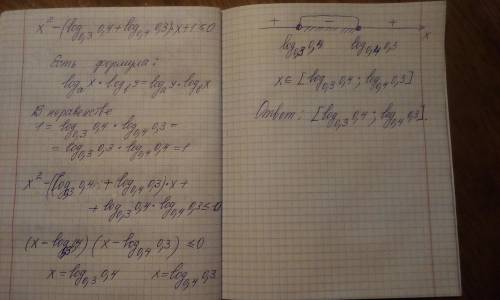 x² - (log₀,₃ 0,4 + log₀,₄ 0,3)·x + 1 ≤ 0
Есть формула:
logₐ x · log y = logₐ y · log x
В неравенстве
1 = log₀,₃ 0,4 · log₀,₄ 0,3 =
= log₀,₃ 0,3 · log₀,₄ 0,4 = 1
x² - (log₀,₃ 0,4 + log₀,₄ 0,3)·x +
+ log₀,₃ 0,4 · log₀,₄ 0,3 ≤ 0
(x - log₀,₃ 0,4) (x - log₀,₄ 0,3) ≤ 0
x = log₀,₃ 0,4 x = log₀,₄ 0,3
+ − + x
log₀,₃ 0,4 log₀,₄ 0,3
x ∈ [log₀,₃ 0,4 ; log₀,₄ 0,3]
Ответ: [log₀,₃ 0,4 ; log₀,₄ 0,3].